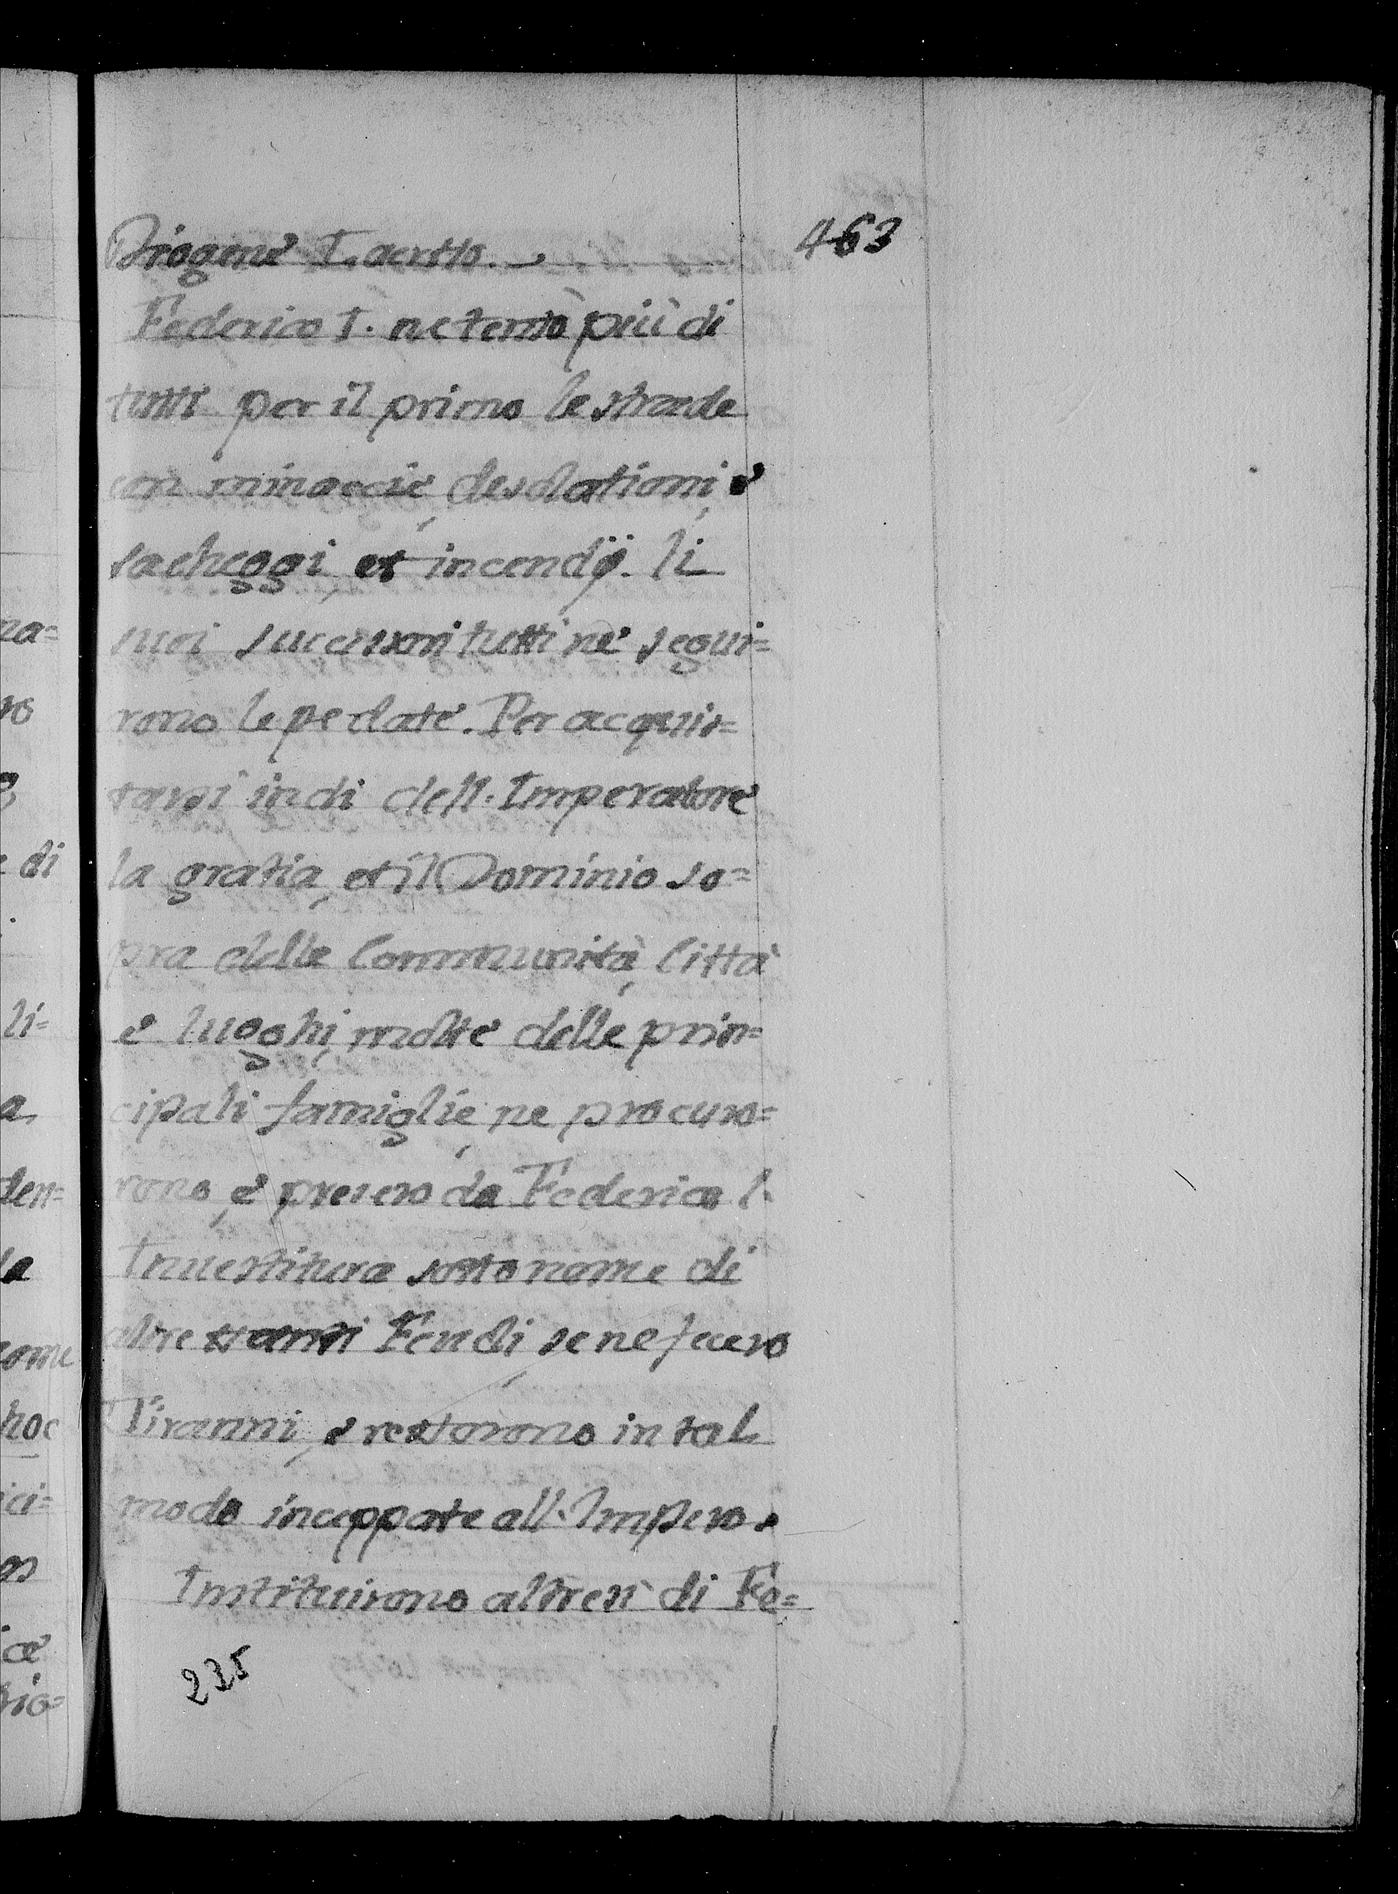 463
Diogene Laertto.
Federico I. ne tentò più di
tutti per il primo le strade
con minaccie, desolationi, e
sacheggi, et incendÿ. li
suoi successori tutti ne segui=
rono le pedate. Per acquis=
tarsi indi dell'Imperatore
la gratia, et il Dominio so=
pra delle Communità, Città
e luoghi, molte delle prin=
cipali famiglie, ne procuro=
rono, e presero da Federico l'
Inuestitura sotto nome di
altre ttanti Feudi, se ne fecero
Tiranni, e restorono in tal
modo inceppate all'Impero.
Instituirono altresì di Fe=
235
na=
ro
e di
li=
a
den=
la
come
hoc
ici=
os
ce